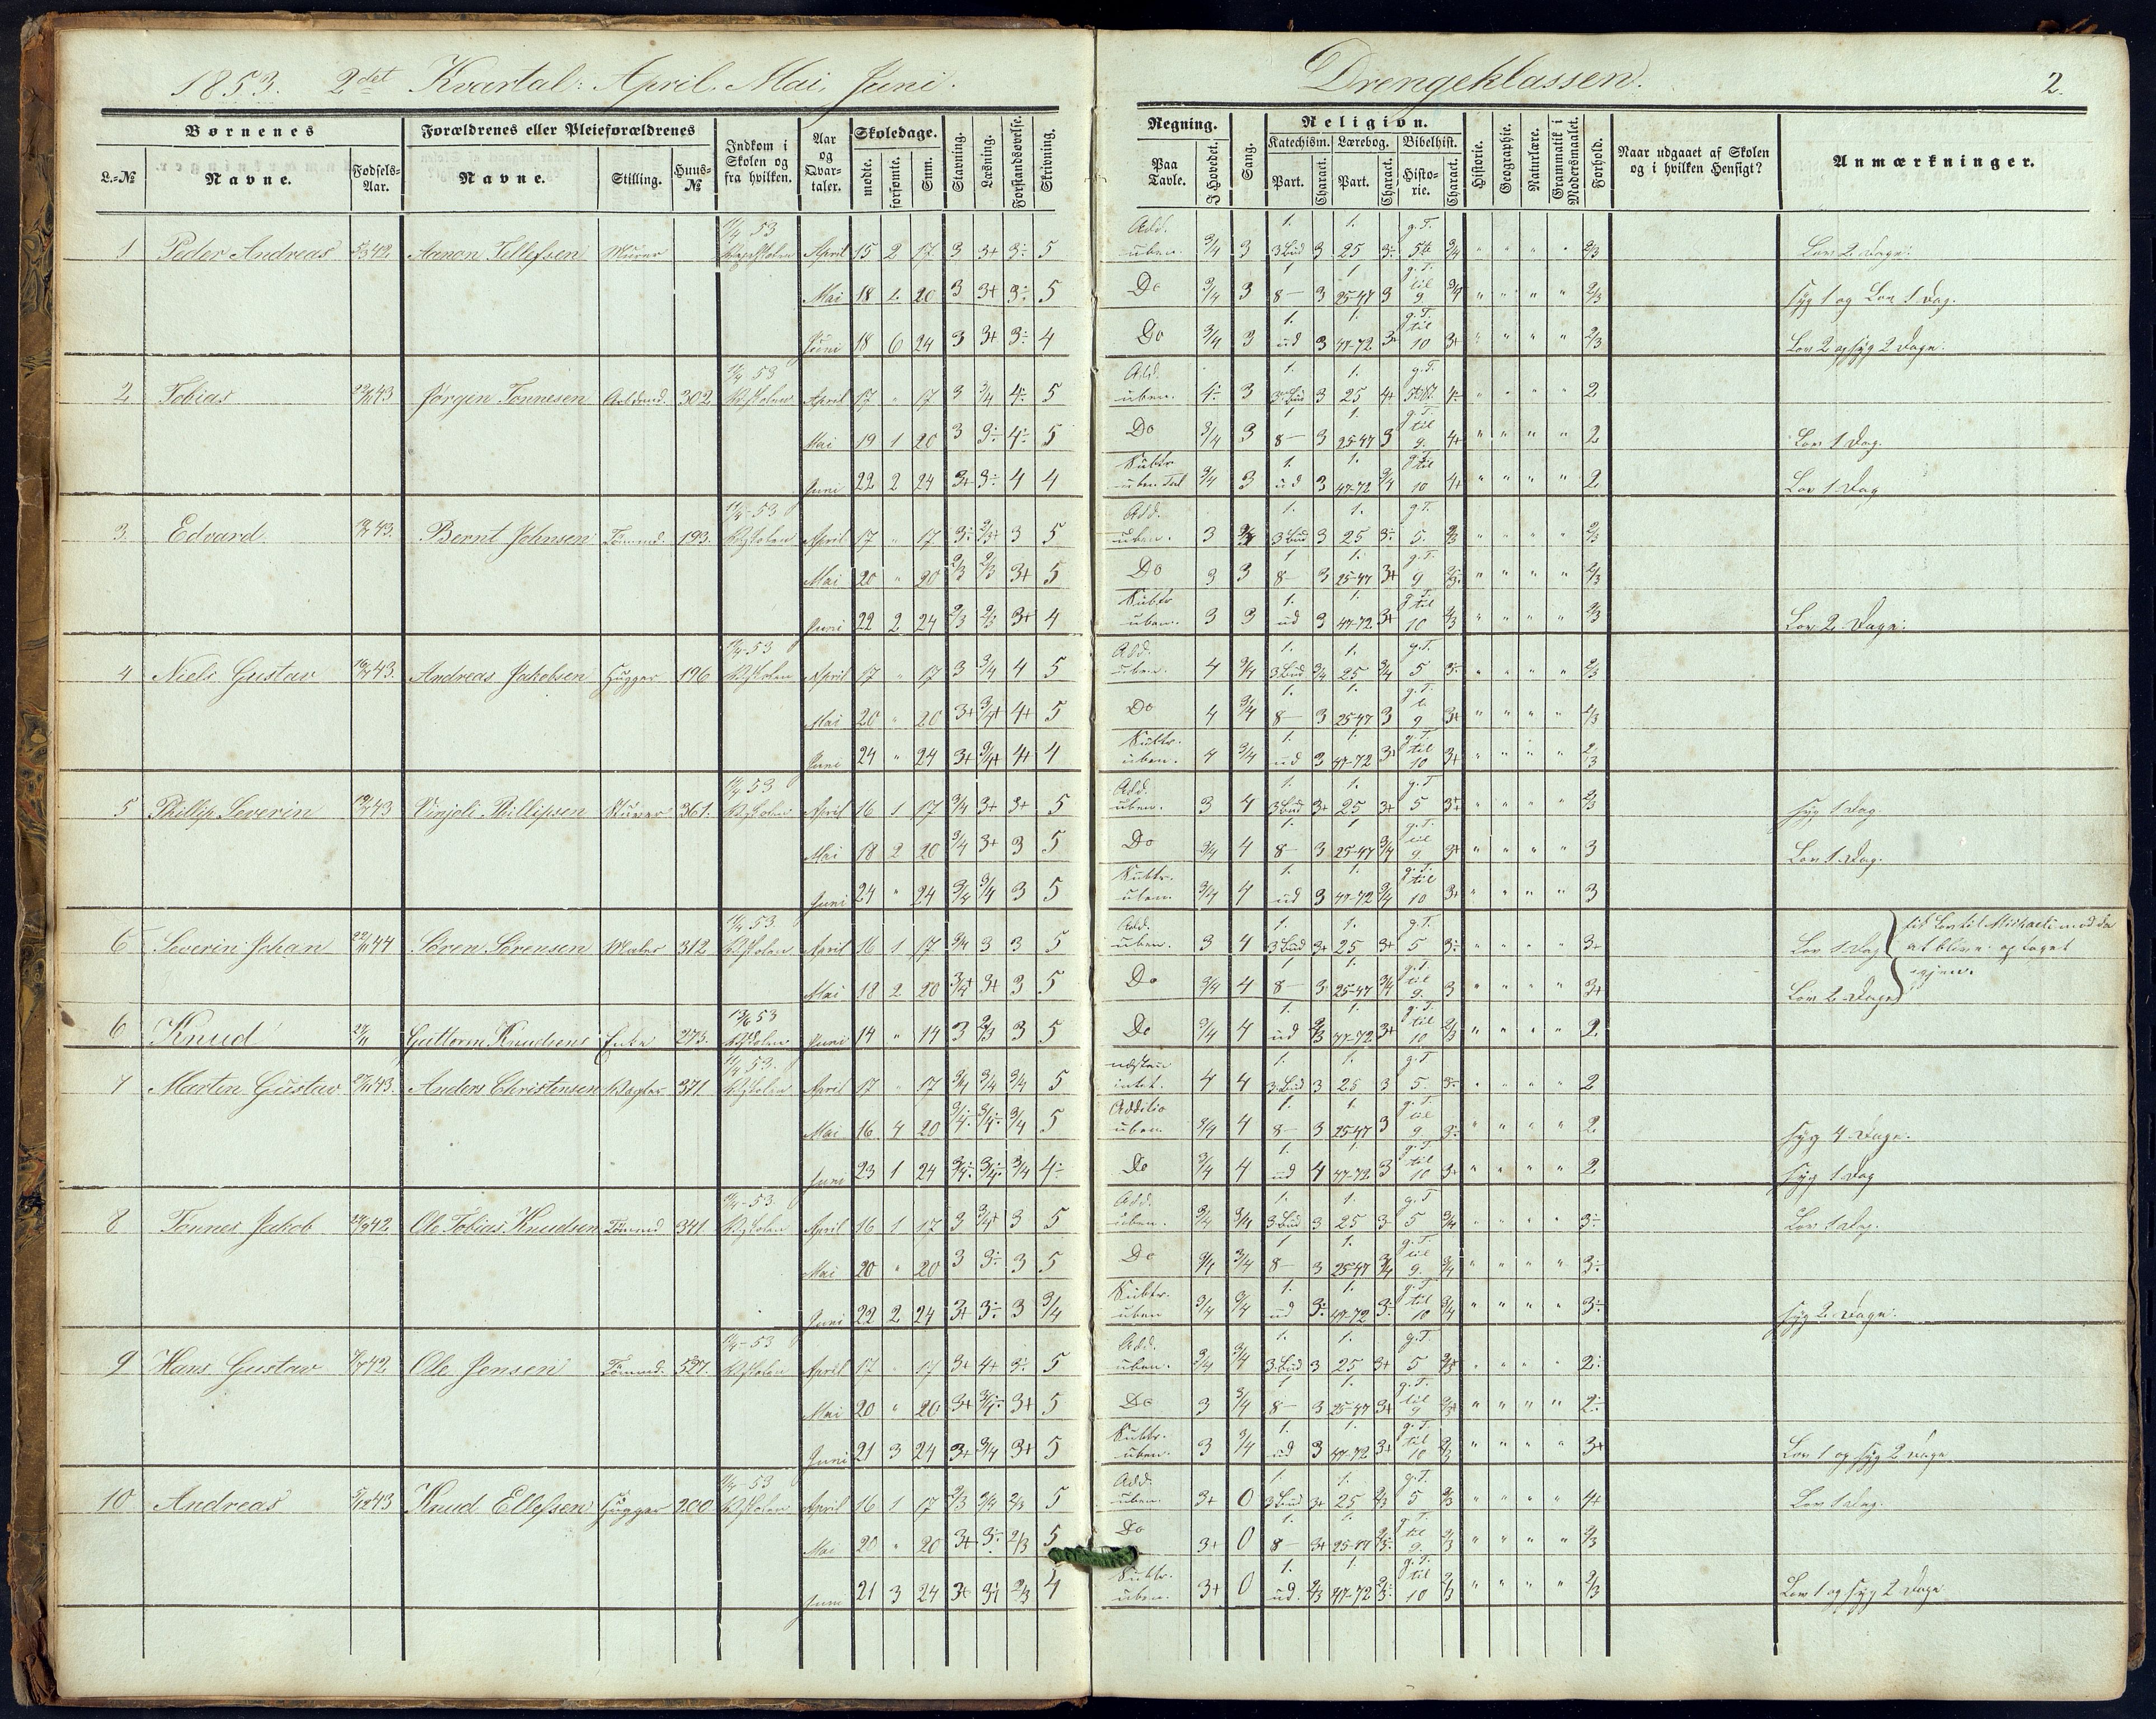 1853. 2det Kvartal: April. Mai, Juni.
Drengeklassen.
2.
Børnenes
Forældrenes eller Pleieforældrenes
Indkom i Skolen og fra hvilken.
Aar og Qvartaler.
Skoledage.
Stavning.
Læsning.
Forstandsøvelse.
Skrivning.
L.-No
Navne.
Fødsels-Aar.
Navne.
Stilling.
Huus-No
mødte.
forsømte.
Sum.
Regning.
Paa Tavle.
I Hovedet.
Sang.
Religion.
Katechism. Lærebog. Bibelhist.
Part. Charact. Part. Charact. Historie. Charact.
Historie.
Geographie.
Naturlære.
Grammatik i Modersmaalet.
Forhold.
Naar udgaaet af Skolen og i hvilken Hensigt?
Anmærkninger.
1 Peder Andreas Aanon Tellefsen Murer 11/4 53 April 15 2 17 3 3+ 3÷ 5 Add. uben. 3/4 3 3 Bud 3 25 3÷ g.T. 3/4 " " " " 2/3 Lov 2 Dage.
Mai 18 2 20 3 3+ 3÷ 5 Do 3/4 3 8 – 3 25-47 3 g.T. til 9 3/4 " " " " 2/3 syg 1 og Lov 1 Dag.
Juni 18 6 24 3 3+ 3÷ 4 Do 3/4 3 ud 3 47-72 3 g.T. til 10 3+ " " " " 2/3 Lov 2 og syg 2 Dage.
2 Tobias 43 Jørgen Tønnesen 302 11/4 53 April 17 " 17 3 3/4 4÷ 5 Add. uben. 4÷ 3 3 Bud 3 25 4+ g.T. 4÷ " " " " 2
Mai 19 1 20 3 3÷ 4÷ 5 Do 3/4 3 8 – 3 25-47 3 g.T. til 9. 4+ " " " " 2 Lov 1 Dag.
Juni 22 2 24 3+ 3÷ 4 4 Subtr. 3/4 3 ud 3 47-72 3/4 til 10 4+ " " " " 2 Lov 1 Dag
3. Edvard 43. Bernt Johnsen Tømmd. 193. 11/4-53 April 17 " 17 3÷ 2/3+ 3 5 Add. uben. 3 3 Bud 3 25 3÷ g.T. 5. 2/3 " " " " 2/3
Mai 20 " 20 2/3 2/3 3+ 5 Do 3 3 8 – 3 25-47 3+ g.T. 9 " " " " 2/3
Juni 22 2 24 2/3 2/3 3+ 4 Subtr uben. 3 3 ud 3 47-72 3+ til 10 2/3 " " " " 2/3 Lov 2 Dage.
4 Niels Gustav 43. Andreas Jakobsen Hugger 196 11/4-53 April 17 " 17 3 3/4 4 5 Add. uben. 4 3/4 3 Bud 3/4 25 3/4 g.T. 5 3÷ " " " " 2/3
Mai 20 " 20 3+ 3/4+ 4+ 5 Do 4 3/4 8 – 3 25-47 3 g.T. 9 3+ " " " " 2/3
Juni 24 " 24 3+ 3/4+ 4+ 4 Subtr. uben. 4 3/4 ud 3 47-72 3+ g.T. til 10 3+ " " " " 2/3
5 Phillip Severin 43 361. 11/4 53 April 16 1 17 3/4 3+ 3+ 5 Add. uben. 3 4 3 Bud 3+ 25 3+ g.T 5 3+ " " " " 2/3 syg 1 Dag.
Mai 18 2 20 3/4 3+ 3 5 Do 3/4 4 8 – 3 25-47 3/4 g.T. til 9. 3+ " " " " 3 Lov 1 Dag.
Juni 24 " 24 3/4 3/4 3 5 Subtr. uben. 3/4 4 ud 3 47-72 3/4 g.T. til 10 3+ " " " " 3
6 Severin Johan 44 Søren Sørensen 312 11/4-53. April 16 1 17 3/4 3 3 5 Add. uben. 3 4 3 Bud 3+ 25 3+ g.T. 5 3÷ " " " " 3+ Lov 1 Dag
til Michaeli
at blive optaget
igjen.
Mai 18 2 20 3/4+ 3+ 3 5 Do 3/4 4 8 – 3 25-47 3/4 g.T. til 9. 3 " " " " 3+ Lov 2 Dage
6 Knud Guttorm Knudsens Enke 273. 13/6 53 Juni 14 " 14 3 2/3 3 5 Do 3/4 4 ud 2/3 47-72 3+ g.T. til 10 2/3 " " " " 2
7 Martin Gustav 43. Anders Christensen Vægter 371. 11/4 53. April 17 " 17 3/4 3/4 3/4 5 intet. 4 4 3 Bud 3 25 3 g.T 5. 3÷ " " " " 2
Mai 16 4 20 3/4÷ 3/4÷ 3/4 5 Additio uben. 3/4 4 8 – 3 25-47 3 g.T. til 9 3÷ " " " " 2 syg 4 Dage.
Juni 23 1 24 3/4÷ 3/4÷ 3/4 4÷ Do 3/4 4 ud 4 47-72 3 g.T til 10 3+ " " " " 2 syg 1 Dag
8 Tønnes Jakob 42 Ole Tobias Knudsen Tømmd 341. 11/4-53. April 16 1 17 3 3/4+ 3 5 Add. uben. 3/4 3/4 3 Bud 3 25 3 g.T 5 3/4 " " " " 3÷ Lov 1 Dag.
Mai 20 " 20 3 3÷ 3 5 Do 3/4 3/4 8 – 3 25-47 3/4 g.T. til 9. 3/4 " " " " 3÷
Juni 22 2 24 3+ 3÷ 3 3/4 Subtr. uben 3/4 3/4 ud 3÷ 47-72 3÷ g.T til 10 3/4 " " " " 3÷ syg 2 Dage.
9 Hans Gustav 42 Ole Jensen Tømmd. 527. 11/4-53 April 17 " 17 3+ 4+ 3÷ 5 Add. uben. 3/4 3/4 3 Bud 3 25 3+ g.T. 5 " " " " 2÷
Mai 20 " 20 3+ 3/4÷ 3+ 5 Do 3 3/4 8 – 3 25-47 3+ g.T. til 9 " " " " 2÷
Juni 21 3 24 3+ 3/4 3+ 5 Subtr. uben. 3 3/4 ud 3 47-72 3+ g.T. til 10 2/3 " " " " 3+ Lov 1 og syg 2 Dage
10 Andreas 43 Knud Ellefsen Hugger 200 11/4-53 April 16 1 17 2/3 3/4 2/3 5 Add. uben. 3+ 0 3 Bud 3+ 25 2/3 g.T. 5 2/3 " " " " 4+ Lov 1 Dag.
Mai 20 " 20 3+ 3÷ 2/3 5 Do 3+ 0 8 – 3+ 25-47 g.T. til 9. 2/3 " " " " 2/3
Juni 21 3 24 3+ 2/3 4 Subtr. uben. 3+ 0 ud. 2/3 47-72 g.T. til 10 2/3 " " " " 2/3 Lov 1 og syg 2 Dage